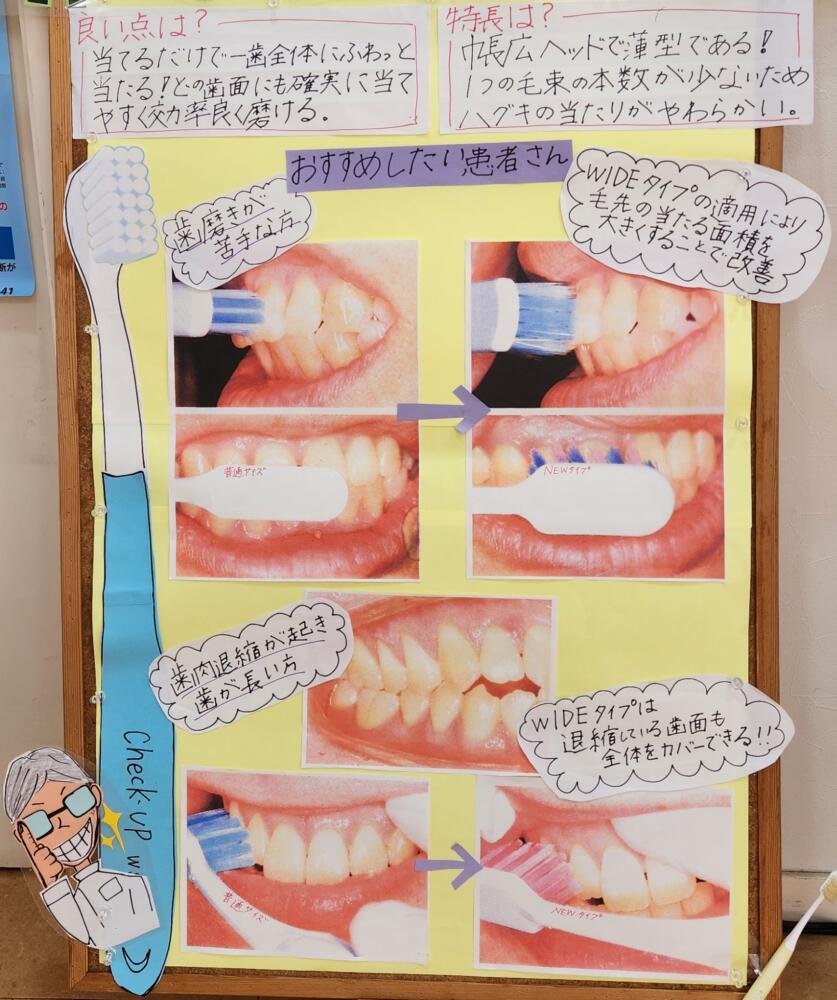 良い点は？
当てるだけで一歯全体にふわっと
当たる！どの歯面にも確実に当て
やすく効率良く磨ける。
特長は？
巾長広ヘッドで薄型である！
1つの毛束の本数が少ないため
ハグキの当たりがやわらかい。
おすすめしたい患者さん
歯磨きが
苦手な方
WIDEタイプの適用により
毛先の当たる面積を
大きくすることで改善
普通サイズ
NEWタイプ
歯肉退縮が起き
歯が長い方
WIDEタイプは
退縮している歯面も
全体をカバーできる!!
普通サイズ
NEWタイプ
Check-up w
41